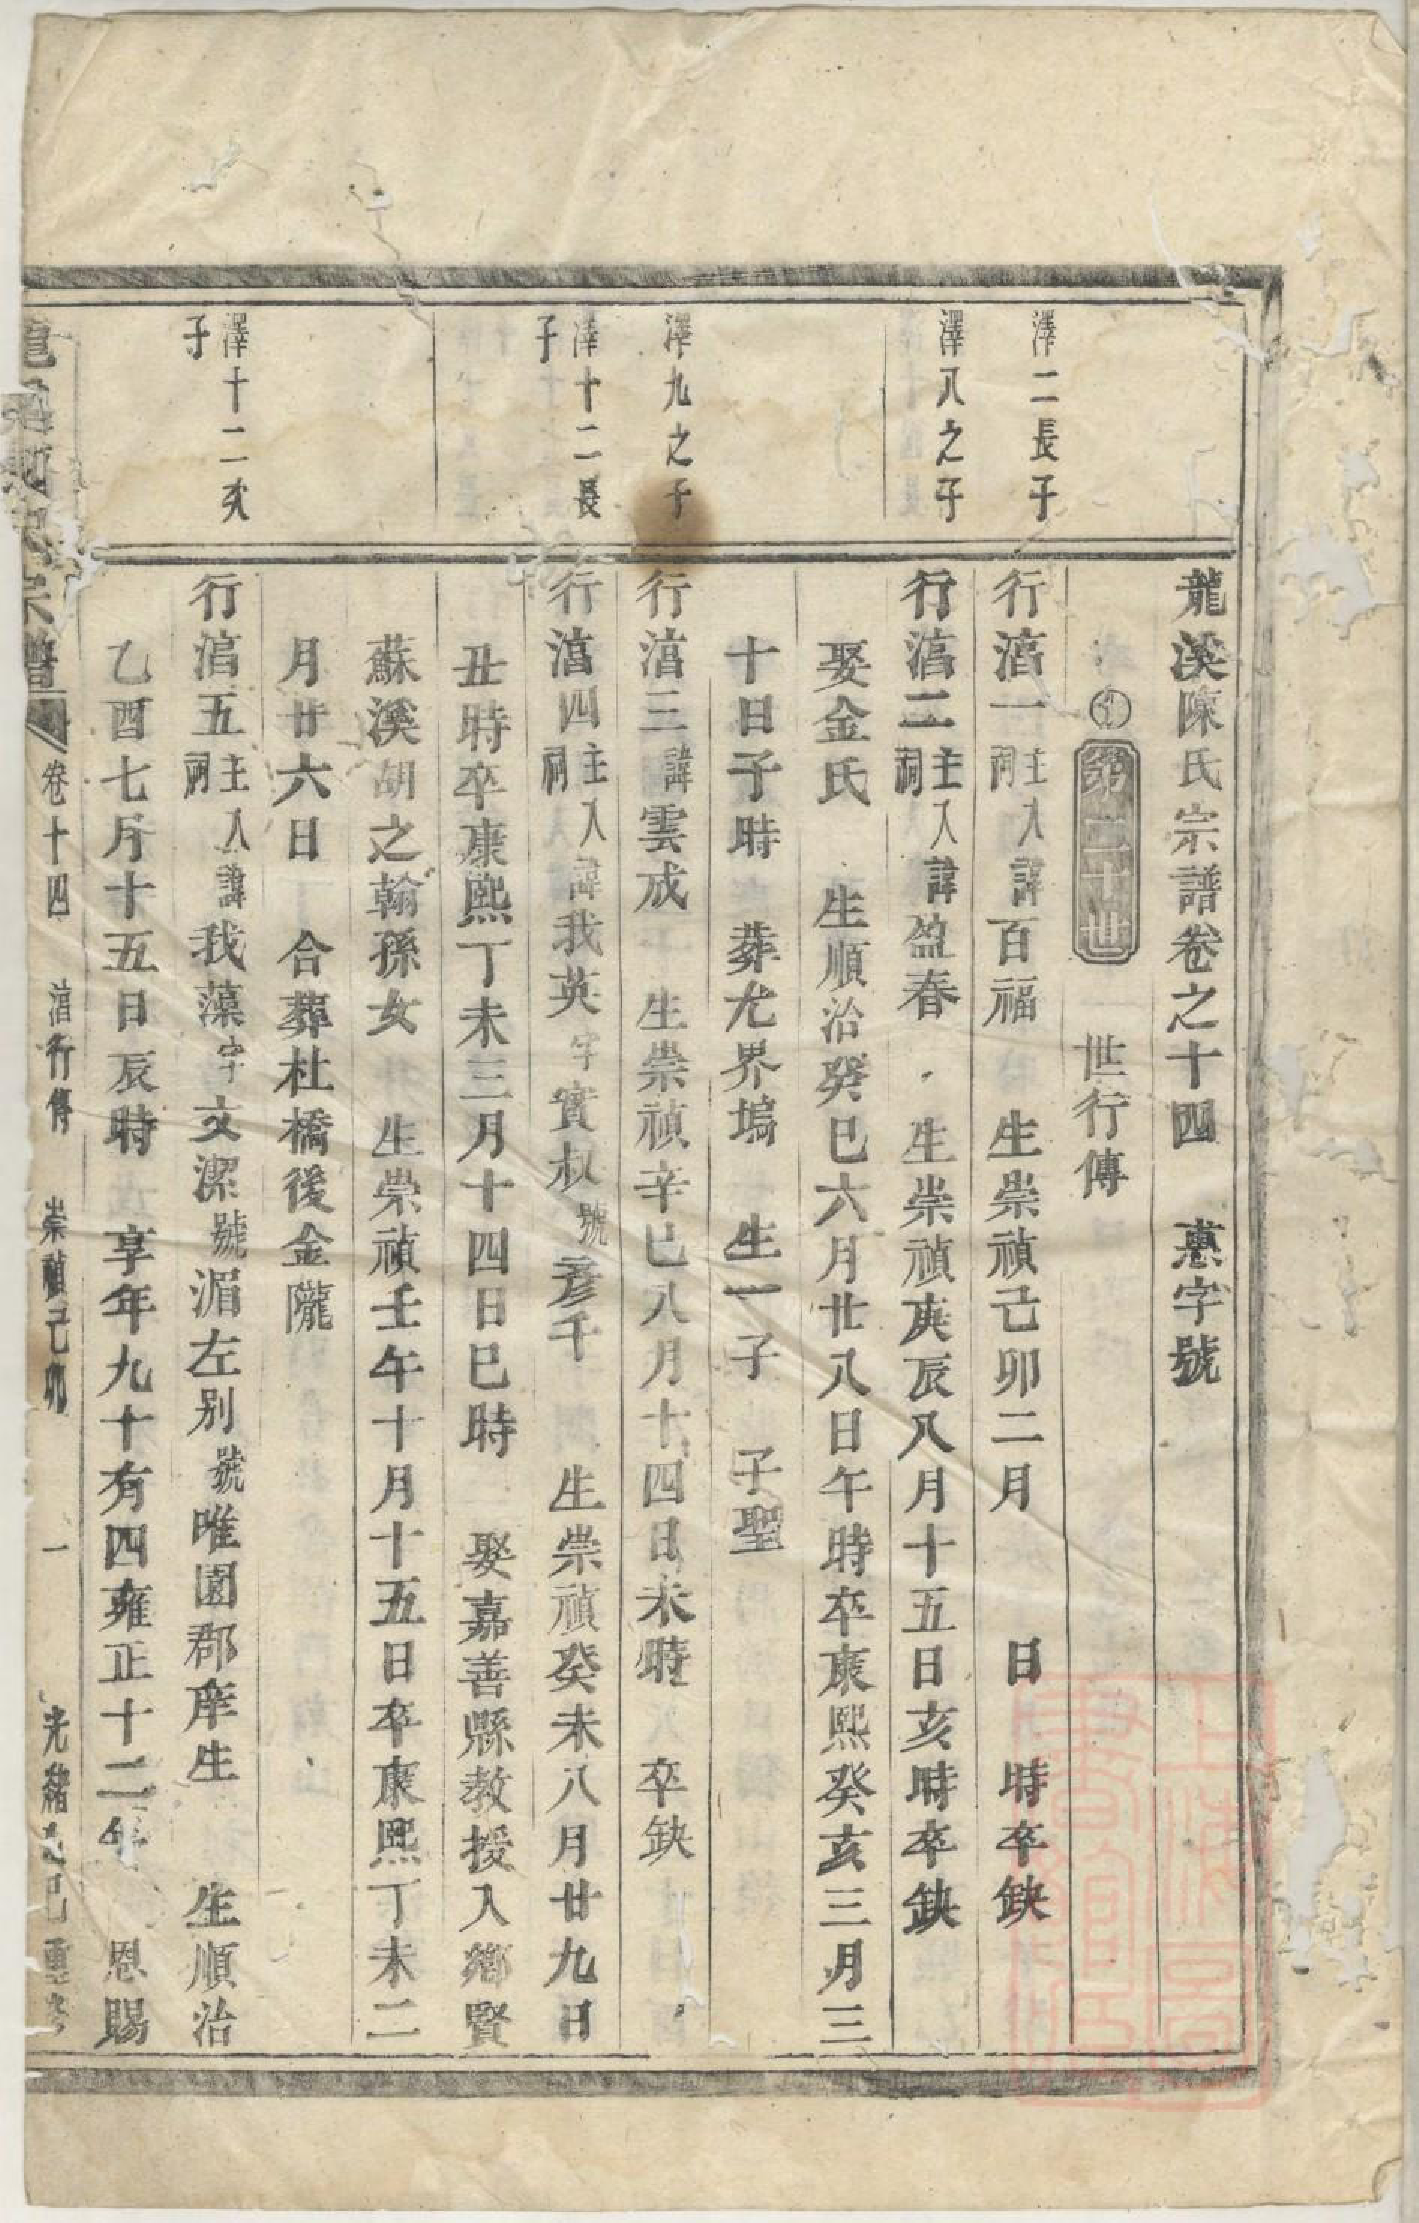 龍溪陳氏宗譜卷之十四 惪字號
第二十世 世行傳
澤二長子
行湻一主入祠諱百福 生崇禎己卯二月 日 時卒缺
澤八之子
行湻二主入祠諱盈春 生崇禎庚辰八月十五日亥時卒缺
娶金氏 生順治癸巳六月廿八日午時卒康熙癸亥三月三
十日子時 葬尤界塢 生一子 子聖
澤九之子
行湻三諱雲成 生崇禎辛巳八月十四日未時 卒缺
澤十二長子
行湻四主入祠諱我英字實叔號彥千 生崇禎癸未八月廿九日
丑時卒康熙丁未三月十四日巳時 娶嘉善縣教授入鄉賢
蘇溪胡之翰孫女 生崇禎壬午十月十五日卒康熙丁未二
月廿六日 合葬杜橋後金隴
澤十二次子
行湻五主入祠諱我藻字文潔號湄左別號唯園郡庠生 生順治
乙酉七月十五日辰時 享年九十有四雍正十二年 恩賜
宗譜 卷十四 湻行傳 崇禎己卯 一 光緒己重修